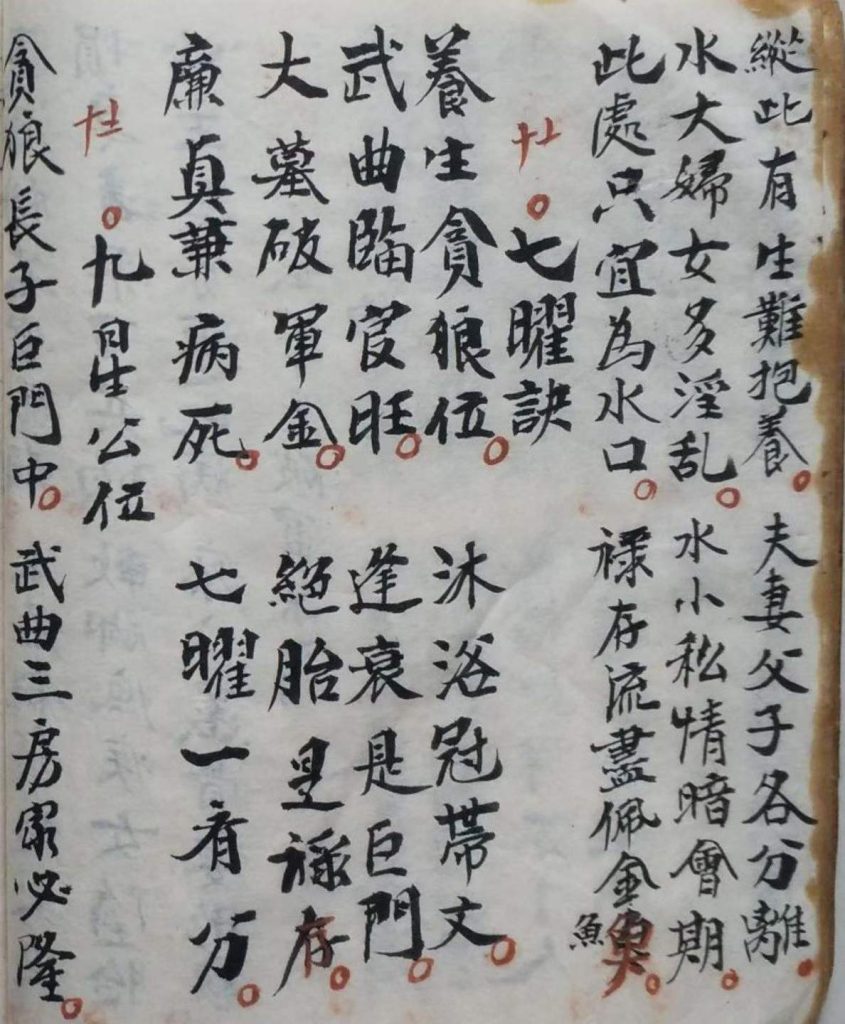 縱此有生難抱養。夫妻父子各分離。
水大婦女多淫乱。水小私情暗會期。
此處只宜為水口。禄存流盡佩金魚。
十上。七曜訣
養生貪狼位。沐浴冠带文。
武曲臨官旺。逢衰是巨門。
大墓破軍金。絕胎是祿存。
廉貞兼病死。七曜一看分。
十生。九星公位
貪狼長子巨門中。武曲三房家必隆。